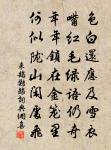 色白還應及雪衣
嘴紅毛綠語仍奇
年年鎖在金籠裏
何似隴山閑處飛
來鵠鸚鵡